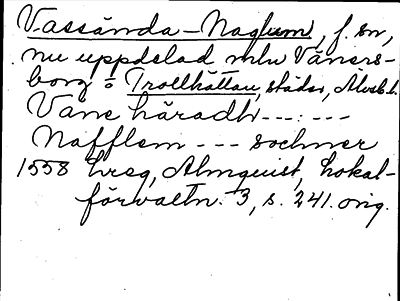 Vassända-Naglum, f. sn,
nu uppdelad mln Väners-
borg o Trollhättan, städer, Älvsb.l.
Vane häradh --:---
Nafflem --- sochner
1558 hrsg, Almquist, Lokal-
förvaltn. 3, s. 241. orig.